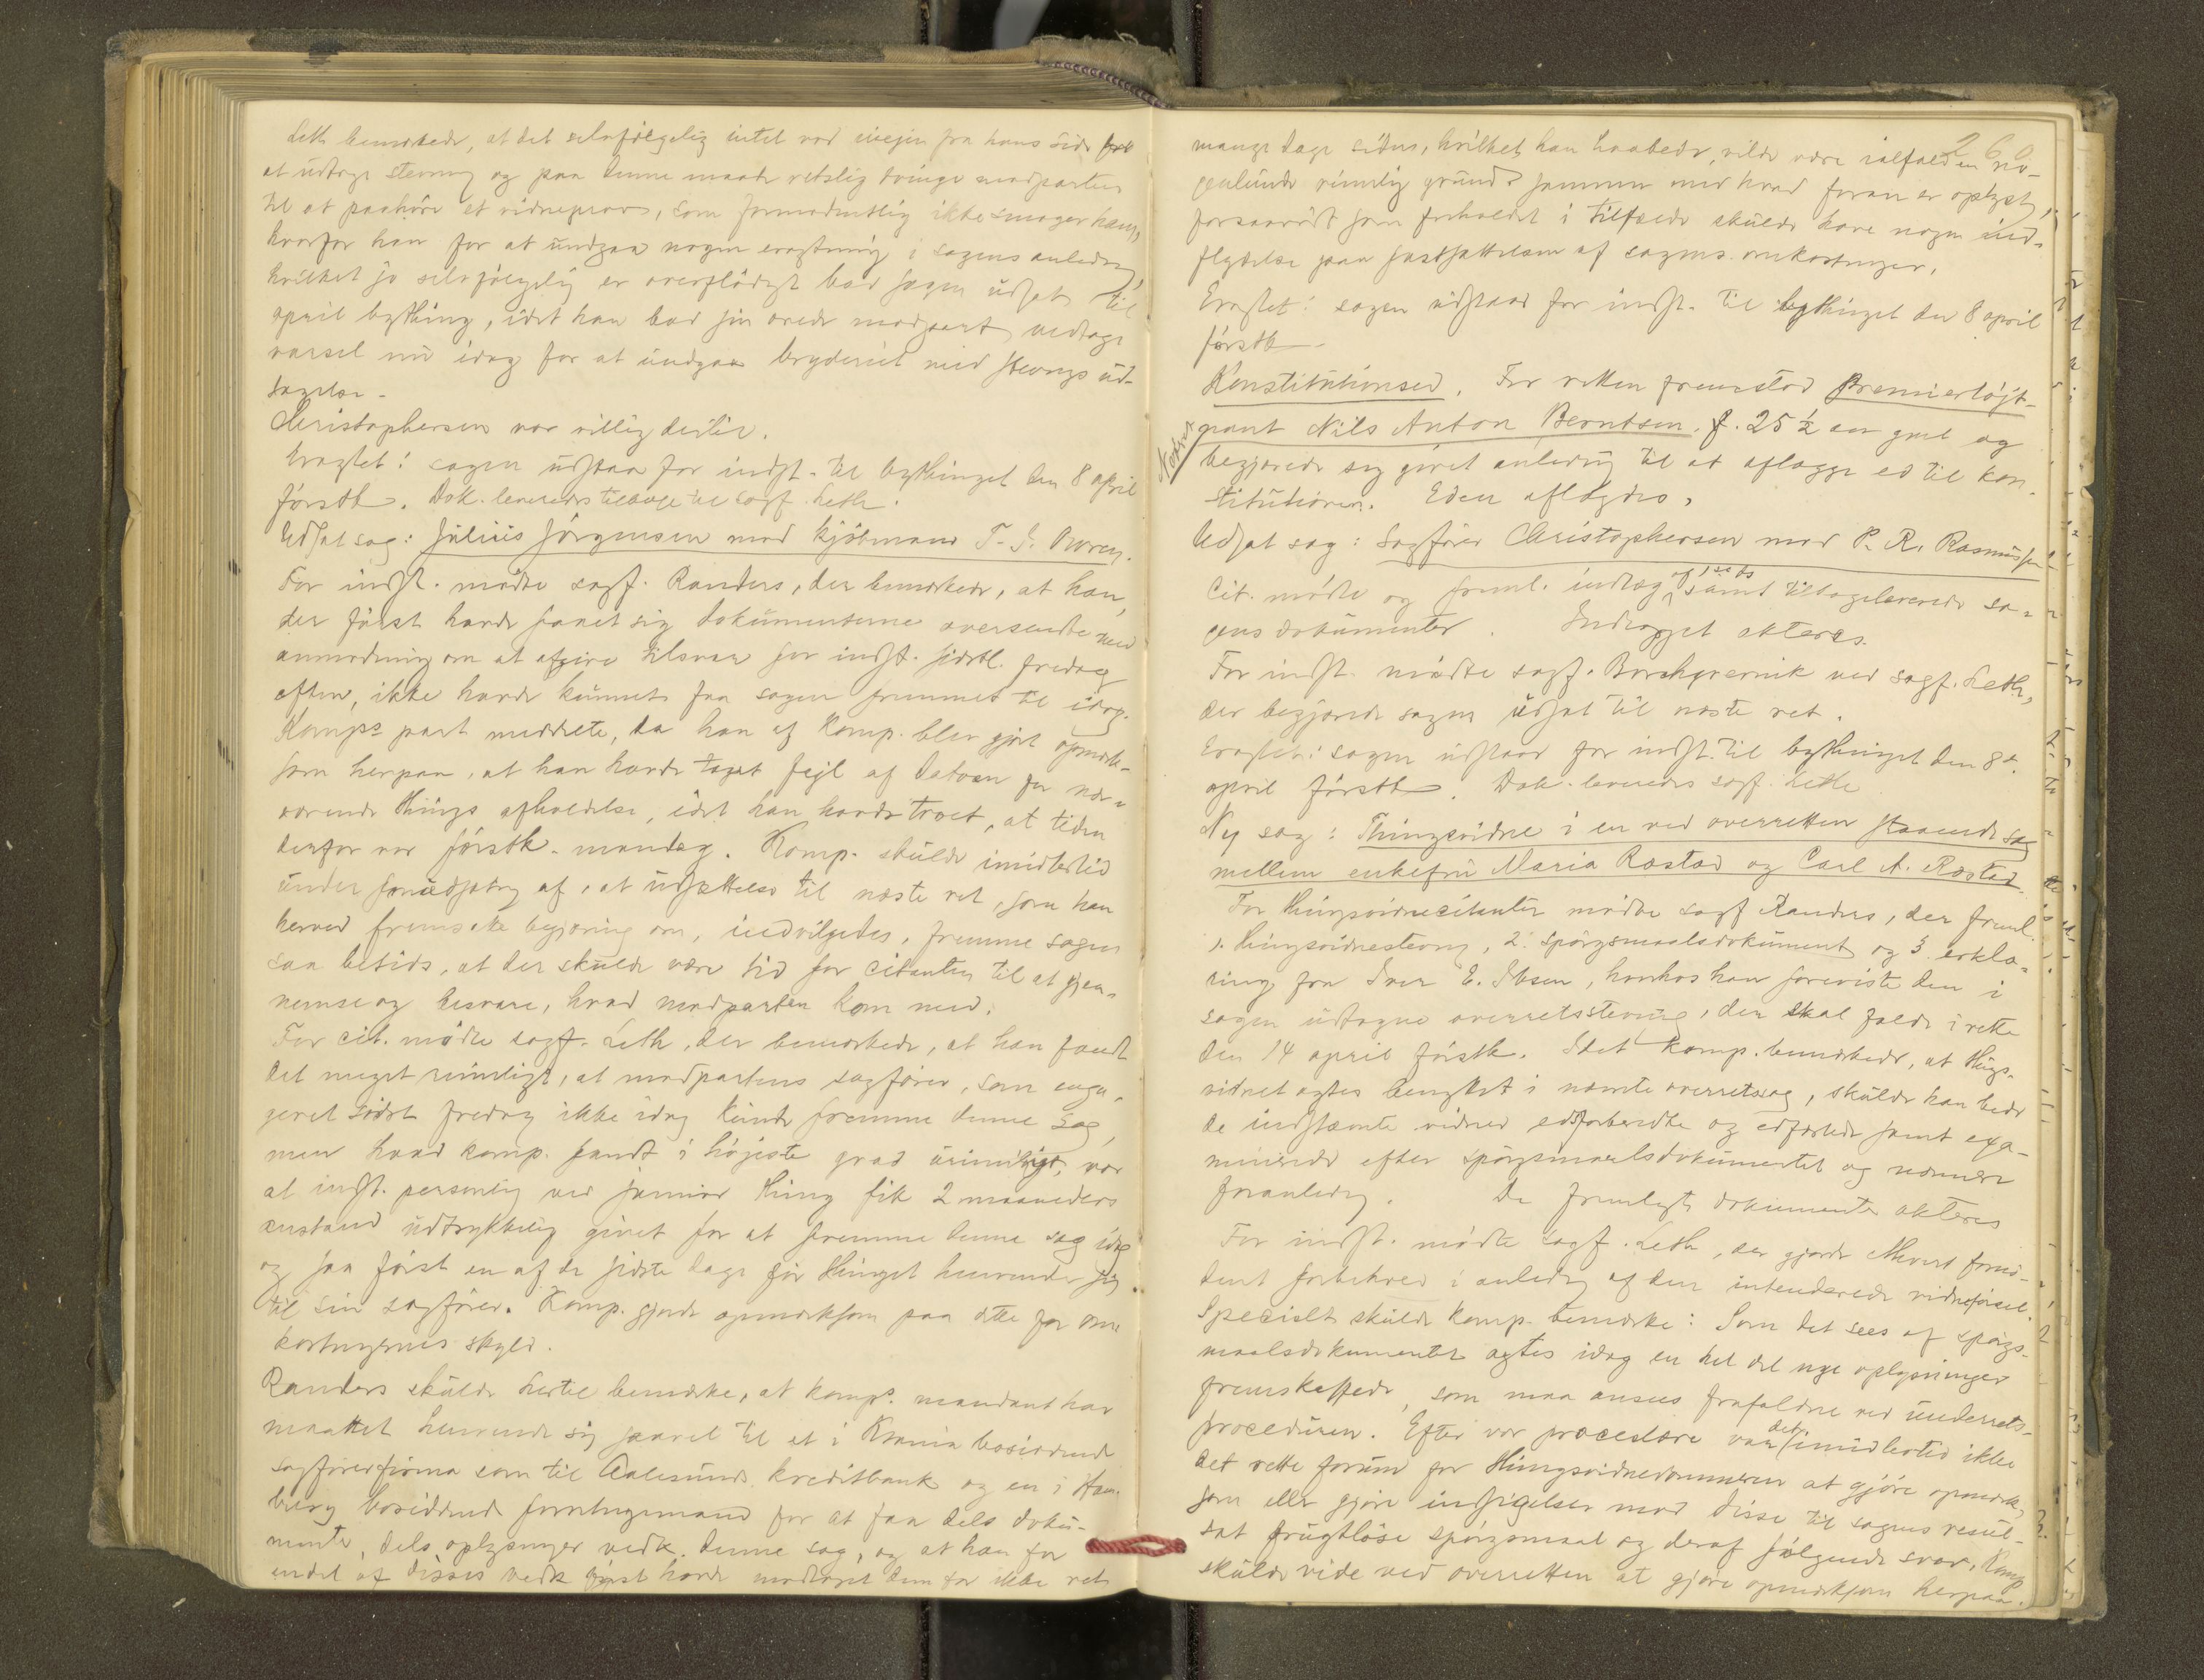 Leth bemærkede, at det selvfølgelig intet var iveien fra hans side for
at udtage stevning og paa denne maade retslig tvinge modparten
til at paahøre et vidneprov, som formodentlig ikke smager ham,
hvorfor han for at undgaa nogen eragtning i sagens anledning,
hvilket jo selvfølgelig er overflødigt bad sagen udsat til
april bything, idet han bad sin ærede modpart vedtage
varsel nu idag for at undgaa bryderiet med stevnings ud-
tagelse.
Christophersen var villig dertil.
Eragtet: sagen udstaar for indst. til bythinget den 8 april
førstk. Dok. leveredes tilbage til sagf. Leth.
Udsat sag: Julius Jörgensen mod kjøbmand T. S.
For indst. mødte sagf. Randers, der bemærkede, at han,
der først havde faaet sig dokumenterne oversendte med
anmodning om at afgive tilsvar for indst. sidstl. fredag
aften, ikke havde kunnet faa sagen fremmet til idag.
Komps part meddelte, da han af komp. blev gjort opmærk-
som herpaa, at han havde taget fejl af datoen for nær-
værende things afholdelse, idet han havde troet, at tiden
derfor var førstk. mandag. Komp. skulde imidlertid
under forudsætning af, at udsættelse til næste ret, som han
herved fremsatte begjæring om, indvilgedes, fremme sagen
saa betids, at der skulde være tid for citanten til at gjen-
nemse og besvare, hvad modparten kom med.
For cit. mødte sagf. Leth, der bemærkede, at han fandt
det meget rimeligt, at modpartens sagfører, som enga-
geret sidst fredag ikke idag kunde fremme denne sag,
men hvad komp. fandt i højeste grad urimeligt, var
at indst. personlig ved januar thing fik 2 maaneders
anstand udtrykkelig givet for at fremme denne sag idag
og saa først en af de sidste dage før thinget henvender sig
til sin sagfører. Komp. gjorde opmærksom paa dette for om-
kostningernes skyld.
Randers skulde hertil bemærke, at komps. mandant har
maattet henvende sig saavel til et i Kr.ania bosiddende
sagførerfirma som til Aalesunds kreditbank og en i Ham-
burg bosiddende forretningsmand for at faa dels doku-
menter, dels oplysninger vedk. denne sag, og at han for
endel af disses vedk først havde modtaget dem for ikke ret
260
mange dage siden, hvilket han haabede, vilde være ialfald en no-
genlunde rimelig grund sammen med hvad foran er oplyst,
forsaavidt som forholdet i tilfælde skulde have nogen ind-
flydelse paa fastsættelsen af sagens omkostninger.
Eragtet: sagen udstaar for indst. til bythinget den 8 april
førstk.
Konstitutionsed. For retten fremstod Premierløjt-
nant Nils Anton Berntsen. f. 25 ½ aar gml og
begjærede sig givet anledning til at aflægge ed til kon-
stitutionen. Eden aflagdes.
Udsat sag: Sagfører Christophersen mod P. R. Rasmussen
Cit. mødte og freml. indlæg af samt tilbageleverede sa-
gens dokumenter. Indlægget akteres.
For indst. mødte sagf. Borchgrevink ved sagf. Leth,
der begjærede sagen udsat til næste ret.
Eragtet: sagen udstaar for indst. til bythinget den 8de
april førstk. Dok. leveredes sagf. Leth
Ny sag: Thingsvidne i en ved overretten staaende sag
mellem enkefru Maria Rastad og Carl A. Rastad.
For thingsvidnecitanten mødte sagf Randers, der freml.
1. thingsvidnestevning, 2. spørgsmaalsdokument og 3. erklæ-
ring fra Iver E. Ibsen, hvorhos han foreviste den i
sagen udtagne overretsstevning, der skal falde i rette
den 14 april førstk. Idet komp. bemærkede, at things-
vidnet agtes benyttet i nævnte overretssag, skulde han bede
de indstævnte vidner edsforberedte og edfæstede samt exa-
minerede efter spørgsmaalsdokumentet og nærmere
foranledning. De fremlagte dokumenter akteres
For indst. mødte sagf. Leth, der gjorde ethvert fornø-
dent forbehold i anledning af den intenderede vidneførsel.
Specielt skulde komp. bemærke: Som det sees af spørgs-
maalsdokumentet agtes idag en hel del nye oplysninger
fremskaffede, som maa ansees frafaldne ved underrets-
proceduren. Efter vor proceslære var det imidlertid ikke
det rette forum for thingsvidnedommeren at gjøre opmærk-
som eller gjøre indsigelser mod disse til sagens resul-
tat frugtløse spørgsmaal og deraf følgende svar. Komp
skulde vide ved overretten at gjøre opmærksom herpaa.